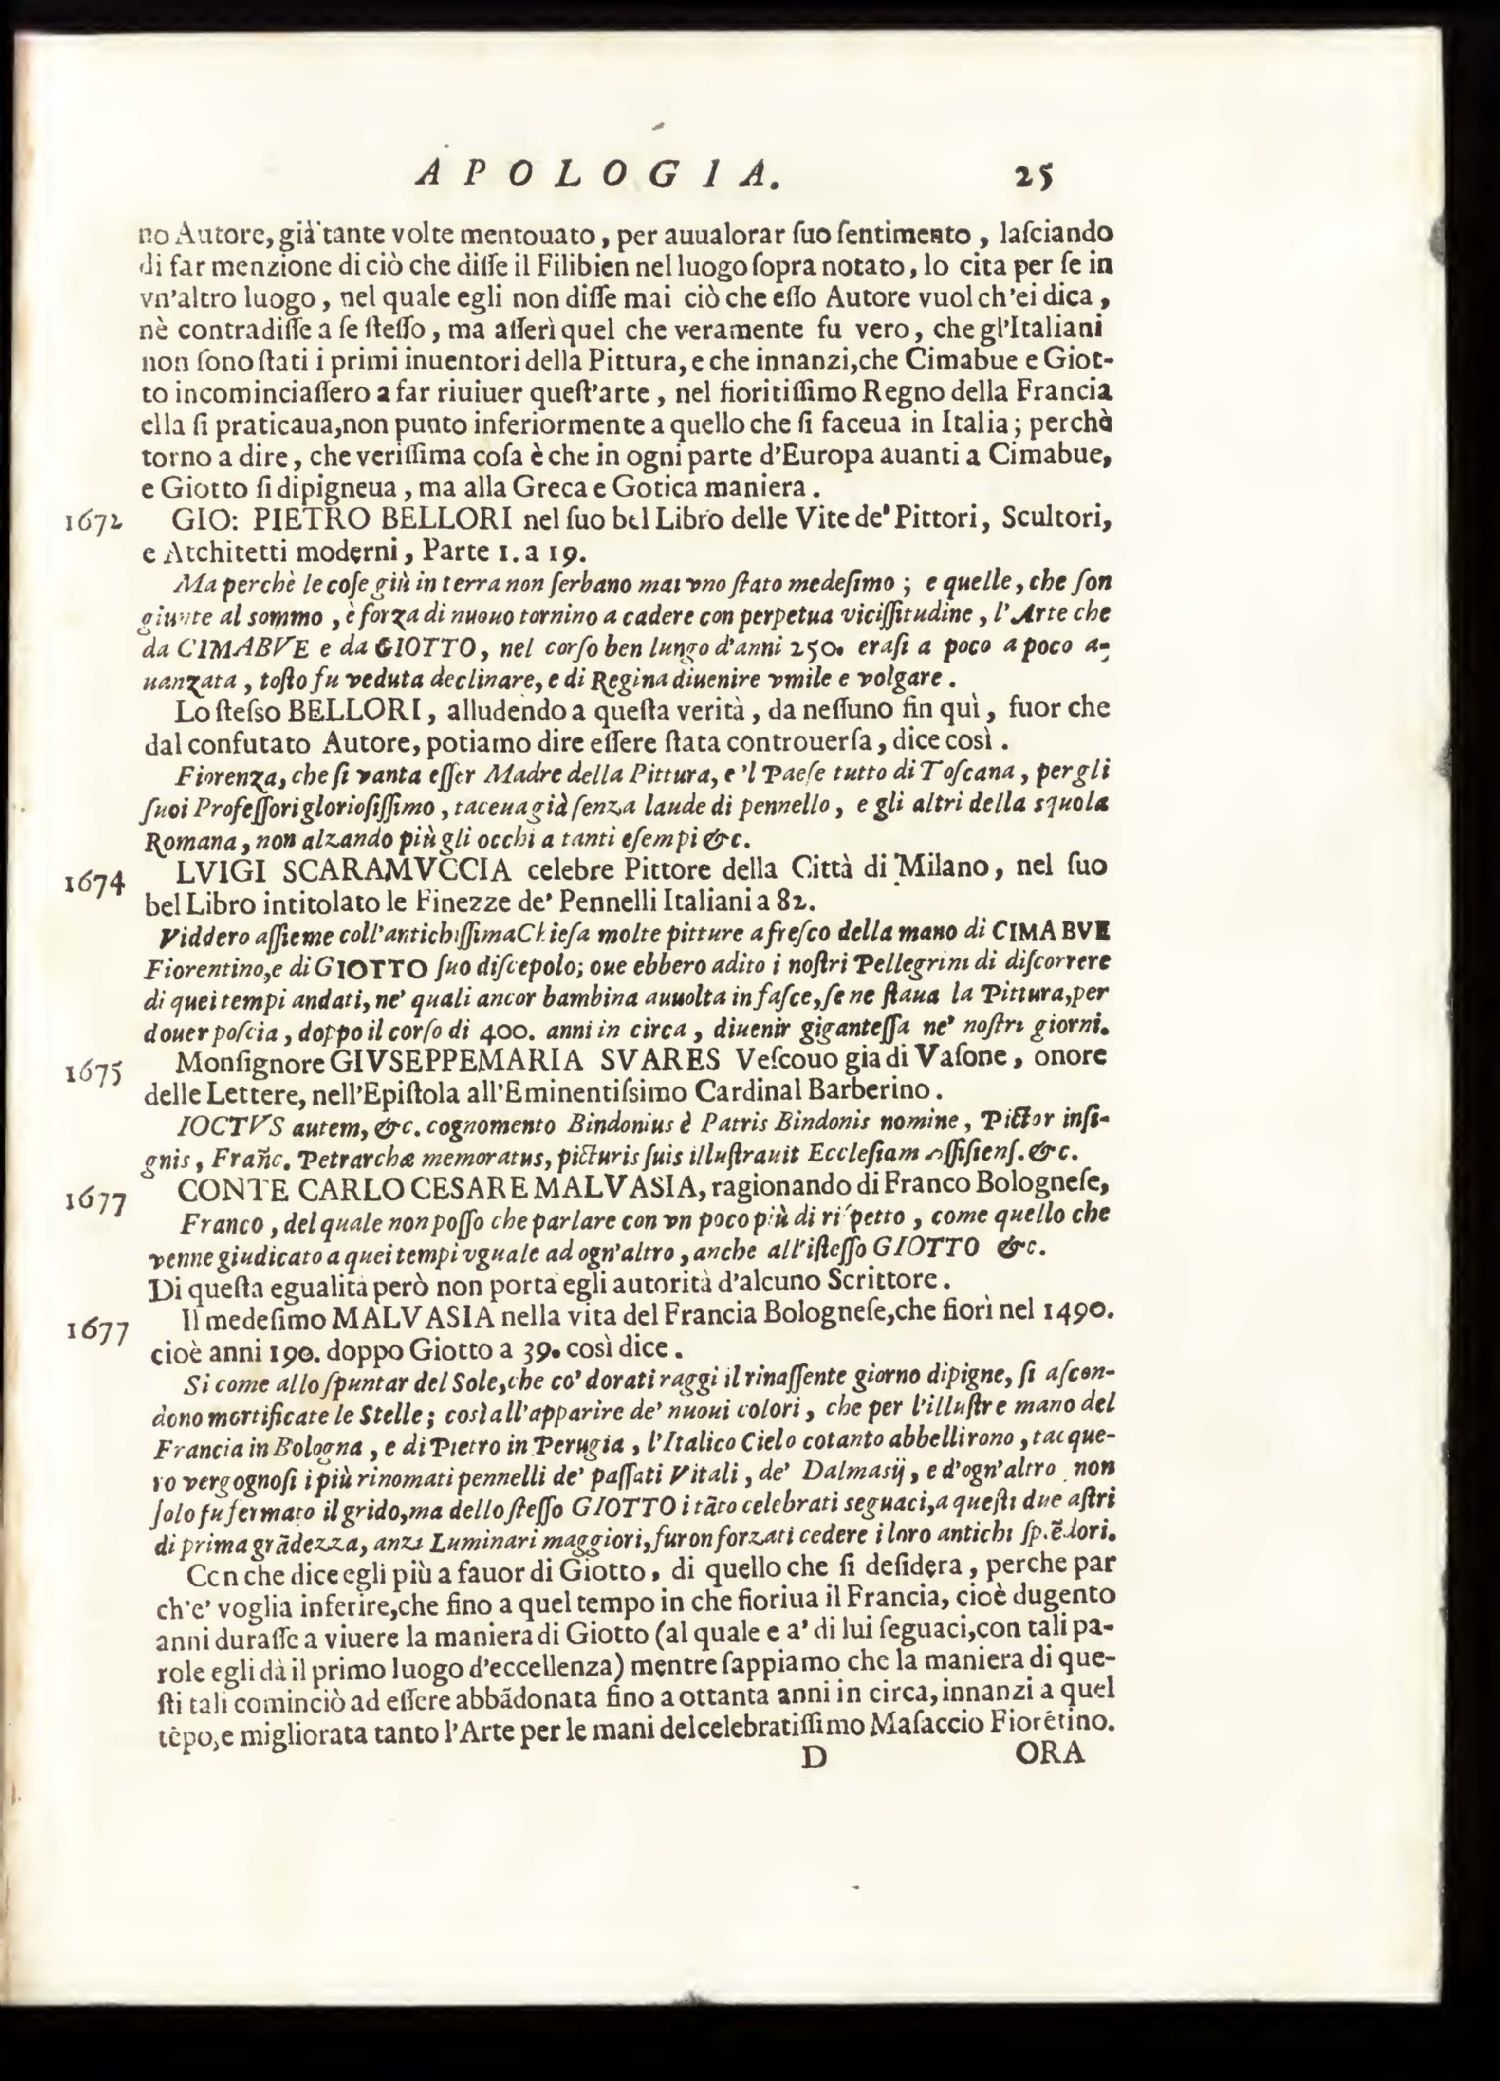 APOLOGIA. 25
no Autore, già tante volte mentouato, per auualorar ſuo ſentimento, laſciando
di far menzione di ciò che diſſe il Filibien nel luogo ſopra notato, lo cita per ſe in
vn'altro luogo, nel quale egli non diſſe mai ciò che eſſo Autore vuol ch'ei dica,
nè contradiſſe a ſe ſteſſo, ma aſſerì quel che veramente fu vero, che gl'Italiani
non ſono ſtati i primi inuentori della Pittura, e che innanzi, che Cimabue e Giot-
to incominciaſſero a far riuiuer queſt'arte, nel fioritiſſimo Regno della Francia
ella ſi praticaua, non punto inferiormente a quello che ſi faceua in Italia; perchà
torno a dire, che veriſſima coſa è che in ogni parte d'Europa auanti a Cimabue,
e Giotto ſi dipigneua, ma alla Greca e Gotica maniera.
1672 GIO: PIETRO BELLORI nel ſuo bel Libro delle Vite de' Pittori, Scultori,
e Architetti moderni, Parte 1. a 19.
Ma perchè le coſe giù in terra non ſerbano mai vno ſtato medeſimo; e quelle, che ſon
giunte al sommo, è forza di nuouo tornino a cadere con perpetua viciſſitudine, l'Arte che
da CIMABVE e da GIOTTO, nel corſo ben lungo d'anni 250. eraſi a poco a poco a-
uanzata, toſto fu veduta declinare, e di Regina diuenire vmile e volgare.
Lo ſteſso BELLORI, alludendo a queſta verità, da neſſuno fin quì, fuor che
dal confutato Autore, potiamo dire eſſere ſtata controuerſa, dice così.
Fiorenza, che ſi vanta eſſer Madre della Pittura, e 'l Paeſe tutto di Toſcana, per gli
ſuoi Profeſſori glorioſiſſimo, taceua già ſenza laude di pennello, e gli altri della squola
Romana, non alzando più gli occhi a tanti eſempi &c.
1674 LVIGI SCARAMVCCIA celebre Pittore della Città di Milano, nel ſuo
bel Libro intitolato le Finezze de' Pennelli Italiani a 82.
Viddero aſſieme coll'antichiſſima Chieſa molte pitture a freſco della mano di CIMABVE
Fiorentino, e di GIOTTO ſuo diſcepolo; oue ebbero adito i noſtri Pellegrini di diſcorrere
di quei tempi andati, ne' quali ancor bambina auuolta in faſce, ſe ne ſtaua la Pittura, per
douer poſcia, doppo il corſo di 400. anni in circa, diuenir giganteſſa ne' noſtri giorni.
1675 Monſignore GIVSEPPEMARIA SVARES Veſcouo gia di Vaſone, onore
delle Lettere, nell'Epiſtola all'Eminentiſsimo Cardinal Barberino.
IOCTVS autem, &c. cognomento Bindonius è Patris Bindonis nomine, Pictor inſi-
gnis, Frañc. Petrarchæ memoratus, picturis ſuis illuſtrauit Eccleſiam aſſiſienſ. &c.
1677 CONTE CARLO CESARE MALVASIA, ragionando di Franco Bologneſe,
Franco, del quale non poſſo che parlare con vn poco più di riſpetto, come quello che
venne giudicato a quei tempi vguale ad ogn'altro, anche all'iſteſſo GIOTTO &c.
Di queſta egualità però non porta egli autorità d'alcuno Scrittore.
1677 Il medeſimo MALVASIA nella vita del Francia Bologneſe, che fiorì nel 1490.
cioè anni 190. doppo Giotto a 39. così dice.
Si come allo ſpuntar del Sole, che co' dorati raggi il rinaſſente giorno dipigne, ſi aſcon-
dono mortificate le Stelle; così all'apparire de' nuoui colori, che per l'illuſtre mano del
Francia in Bologna, e di Pietro in Perugia, l'Italico Cielo cotanto abbellirono, tacque-
ro vergognoſi i più rinomati pennelli de' paſſati Vitali, de' Dalmasij, e d'ogn'altro non
ſolo fu fermato il grido, ma dello ſteſſo GIOTTO i tãto celebrati seguaci, a queſti due aſtri
di prima grãdezza, anzi Luminari maggiori, furon forzati cedere i loro antichi ſplẽdori.
Con che dice egli più a fauor di Giotto, di quello che ſi deſidera, perche par
ch'e' voglia inferire, che fino a quel tempo in che fioriua il Francia, cioè dugento
anni duraſſe a viuere la maniera di Giotto (al quale e a' di lui ſeguaci, con tali pa-
role egli dà il primo luogo d'eccellenza) mentre ſappiamo che la maniera di que-
ſti tali cominciò ad eſſere abbãdonata fino a ottanta anni in circa, innanzi a quel
tẽpo, e migliorata tanto l'Arte per le mani del celebratiſſimo Maſaccio Fiorẽtino.
D ORA